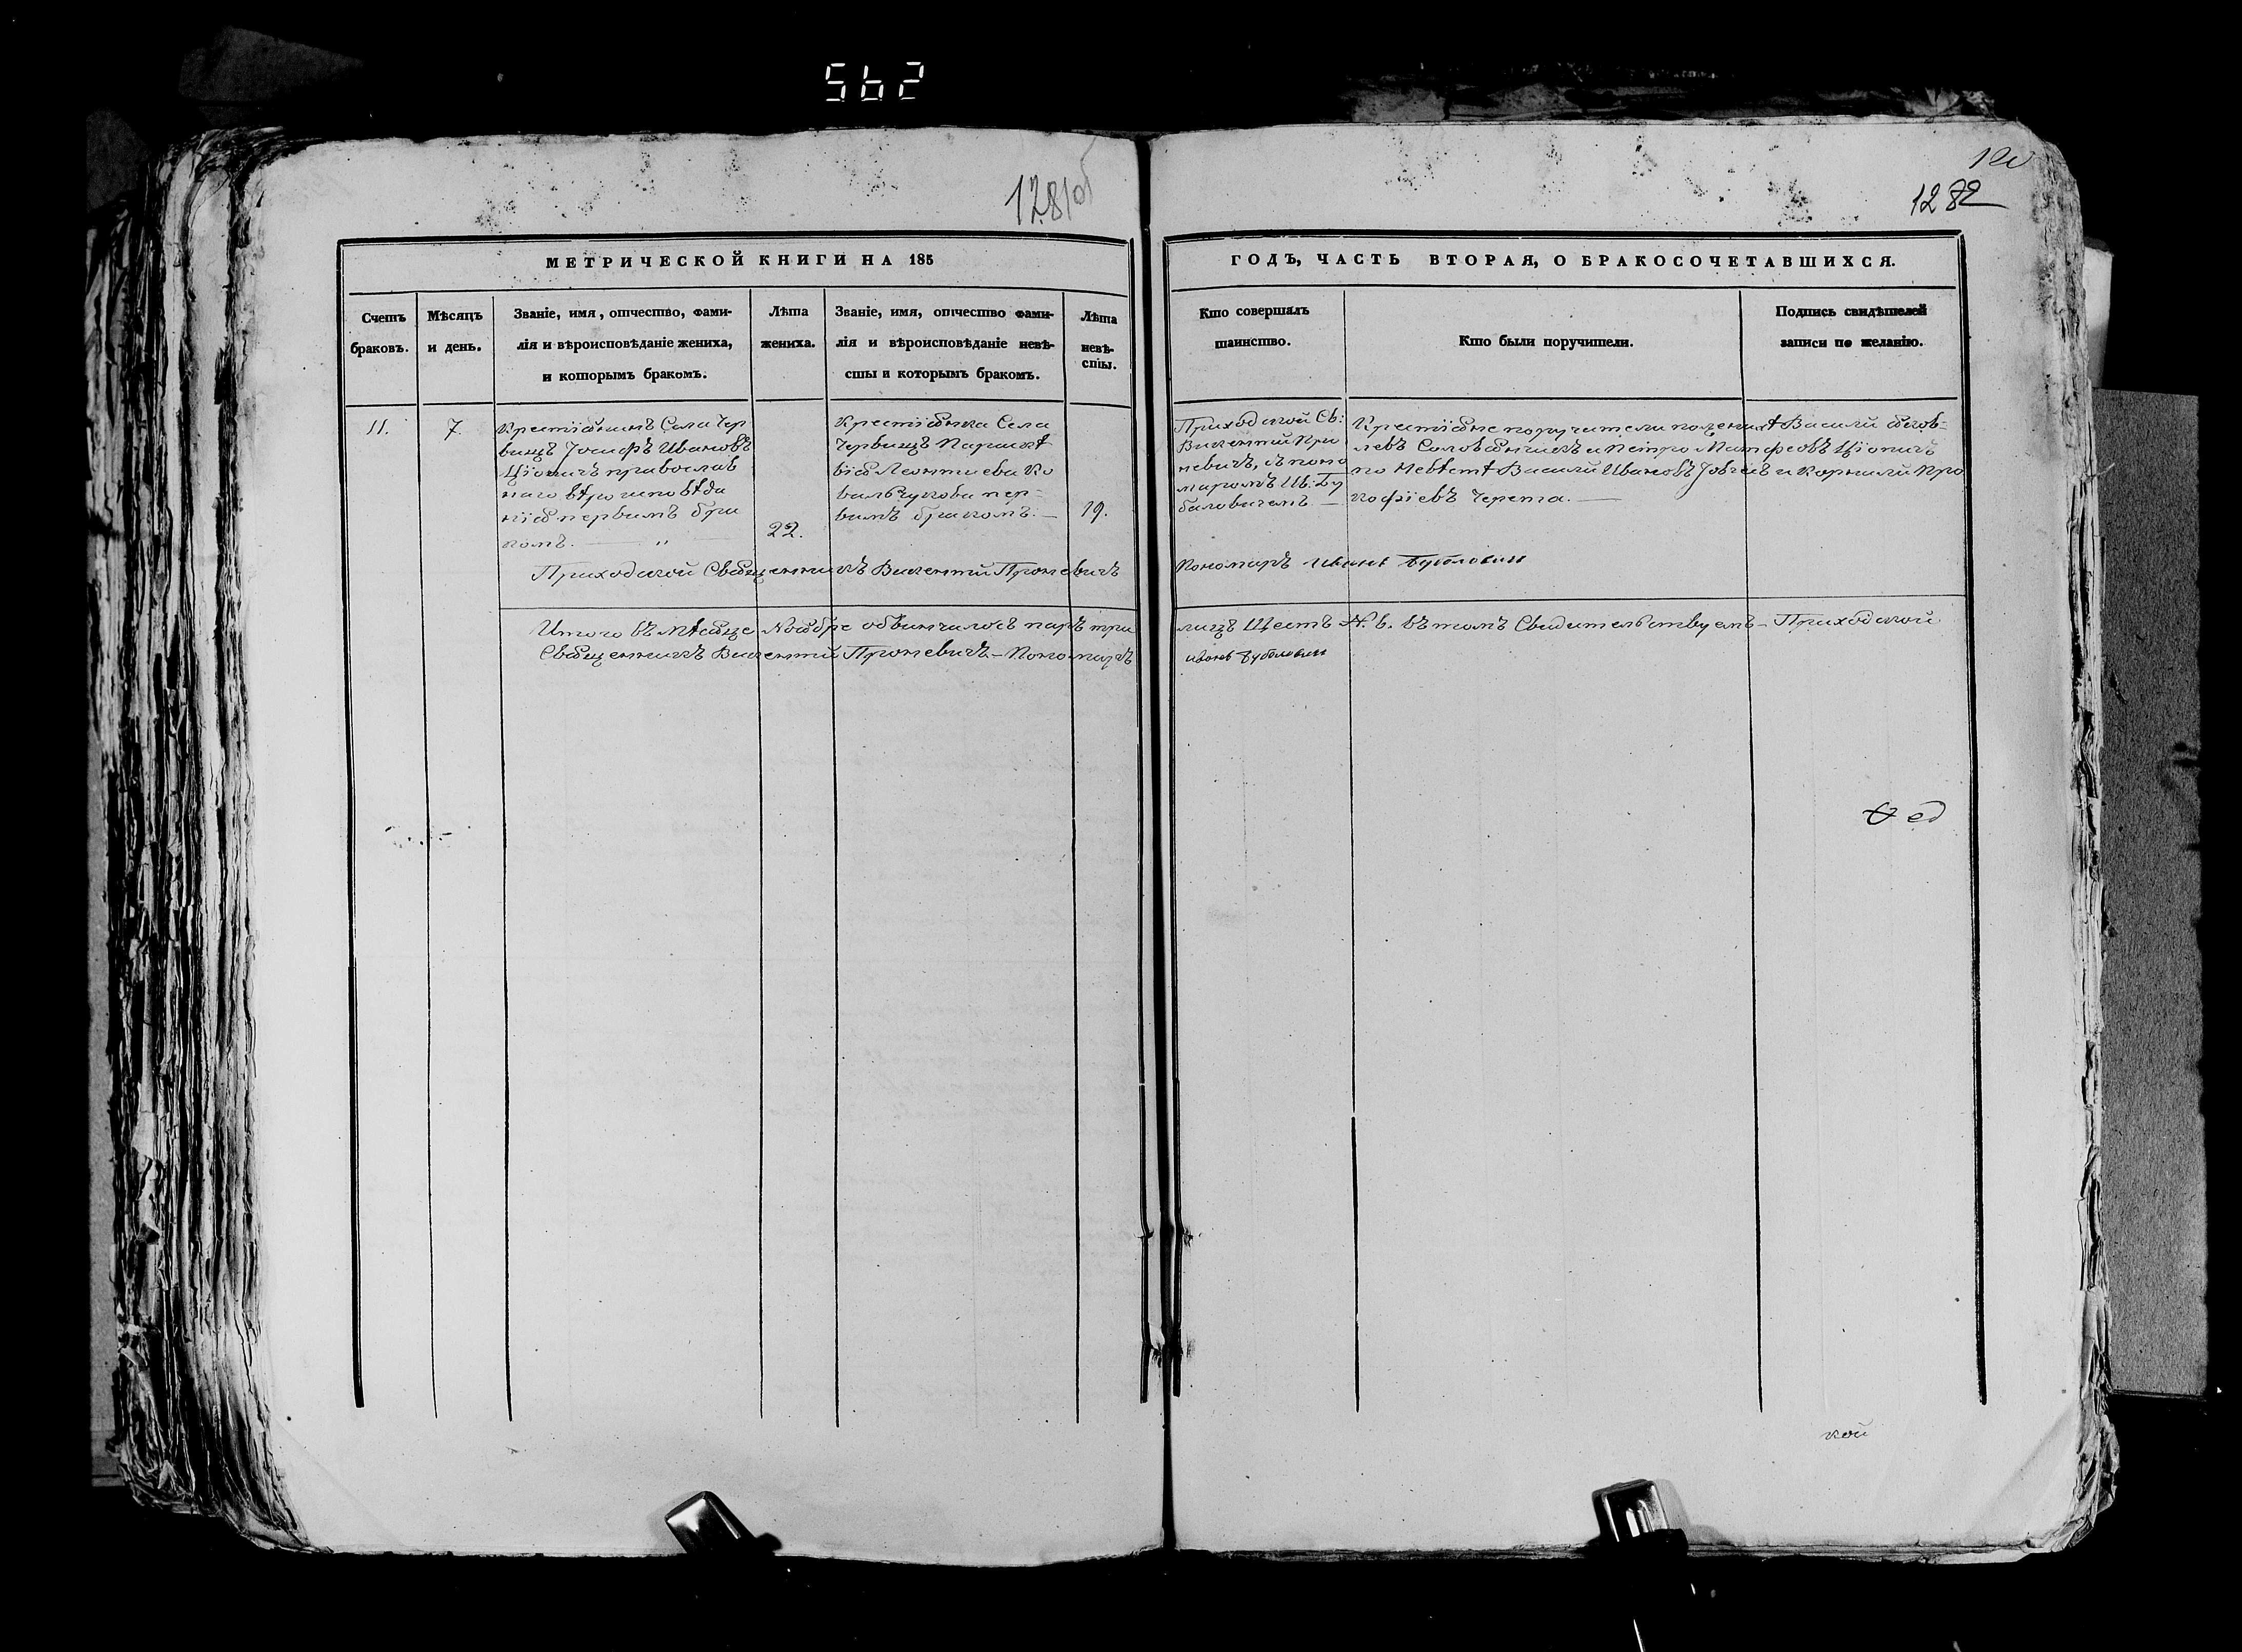 562
1281об
1282
МЕТРИЧЕСКОЙ КНИГИ НА 185
ГОДЪ, ЧАСТЬ ВТОРАЯ, О БРАКОСОЧЕТАВШИХСЯ.
Счетъ
браковъ.
Мѣсяцъ
и день.
Званіе, имя, отчество, фами-
лія и вѣроисповѣданіе жениха,
и которымъ бракомъ.
Лѣта
жениха.
Званіе, имя, отчество фами-
лія и вѣроисповѣданіе невѣ-
сты и которымъ бракомъ.
Лѣта
невѣ-
сты.
Кто совершалъ
таинство.
Кто были поручители.
Подпись свидѣтелей
записи по желанію.
11.
7.
Крестіянинъ Села Чер
вищъ Іосифъ Ивановъ
православ
наго вѣроисповѣда
нія первымъ бра
комъ.
22.
Крестіянка Села
Червищъ Параскѣ
вія Леонтиева Ко
вальчукова пер-
вымъ бракомъ. —
19.
Приходской Св:
Викентий Про
невичъ, съ поно
маромъ Ив: Бу
баловичемъ —
Крестіяне поручители по женихѣ Василий
и Петро Матфеовъ
по Невѣстѣ Василий Ивановъ и Корнилий Про
кофіевъ Черета. —
Приходской Священникъ Викентий Проневичъ
Пономаръ Иванъ Бубаловичъ
Итого въ мѣсяце Ноябре обвинчалось паръ три
лицъ Шесть въ томъ Свидительствуемъ — Приходской
Священникъ Викентий Проневичъ. — Пономаръ
Иванъ Бубаловичъ
кой